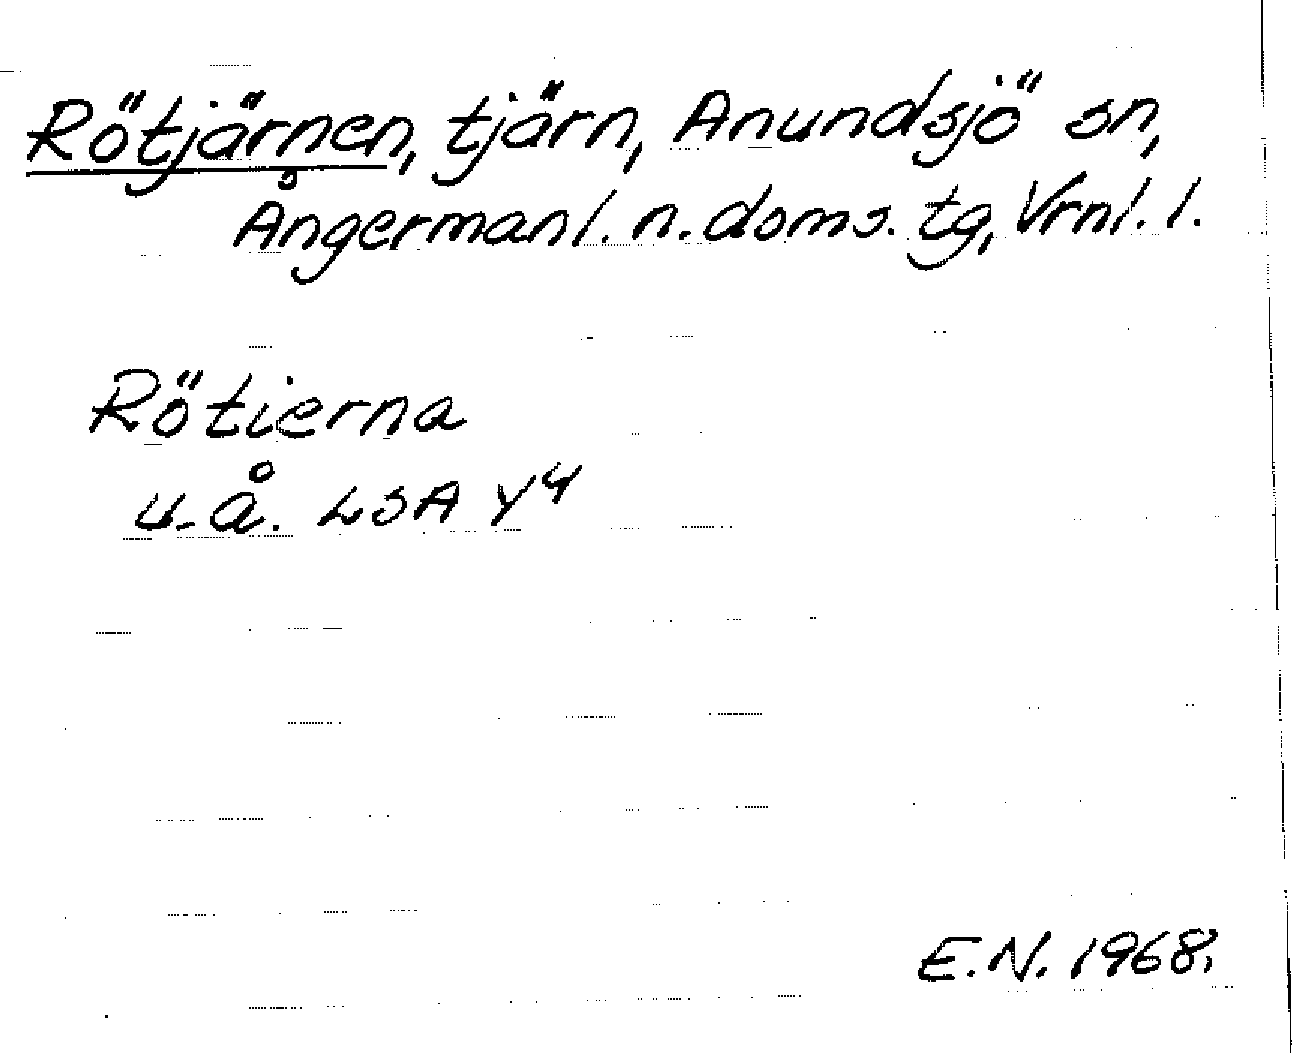 Rötjärnen, tjärn, Anundsjö sn,
Ångermanl. n. doms. tg, Vrnl. l.
Rötierna
u. å. LSA Y4
E.N. 1968.